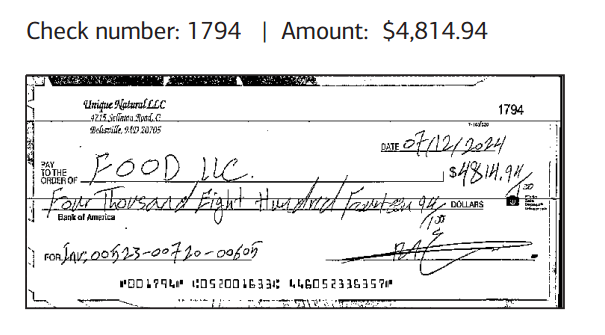 Check number: 1794 | Amount: $4,814.94
Unique Natural LLC
1794
4215 Sellman Road, C
Beltsville, MD 20705
DATE 07/12/2024
PAY
TO THE
ORDER OF FOOD LLC. $4814.94/100
Four Thousand Eight Hundred Fourteen 94/100 DOLLARS
Bank of America
FOR Inv; 00523-00720-00605
⑈001794⑈ ⑆052001633⑆ 446052336357⑈